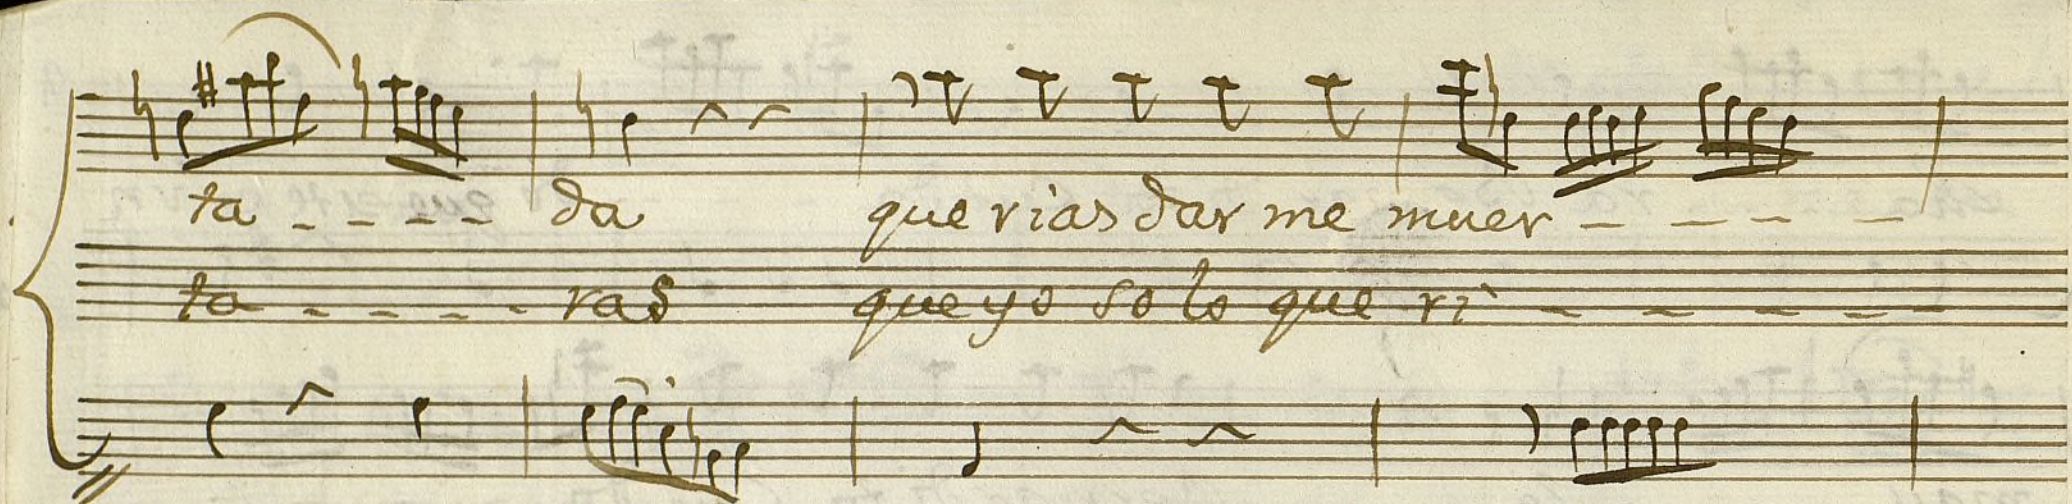 ta - - - - da que rias dar me muer - - - -
ta - - - - ras que yo so lo que ri - - - - -